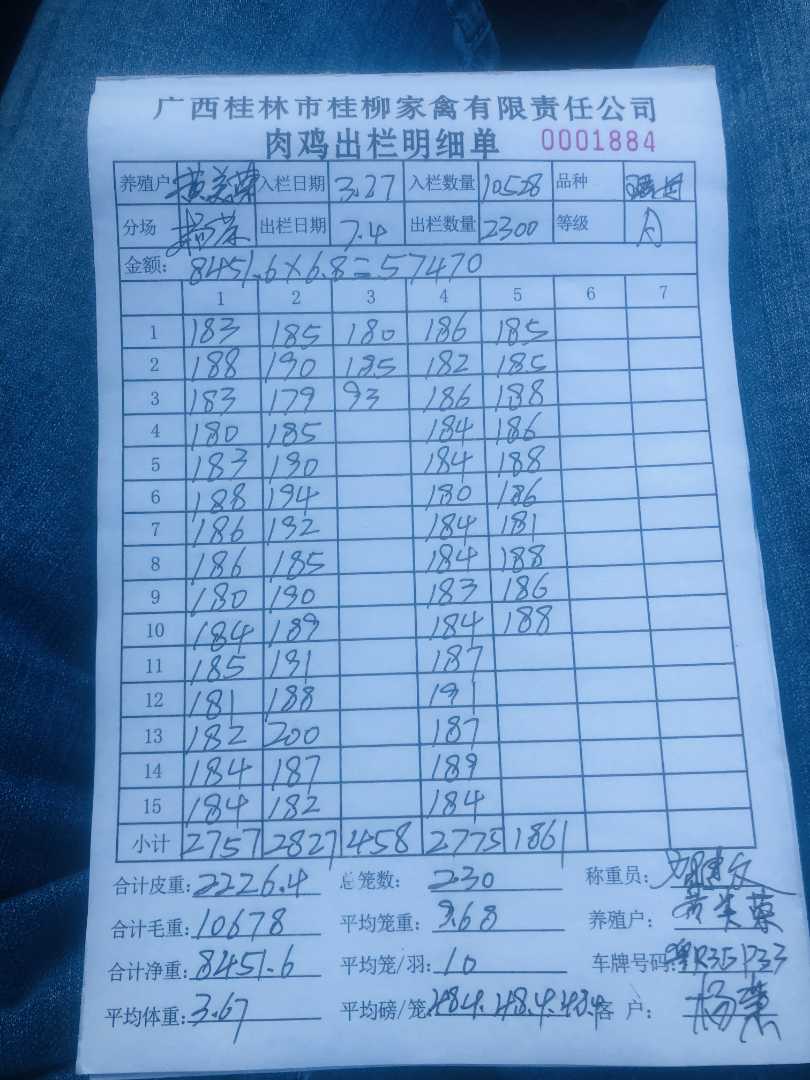 广西桂林市桂柳家禽有限责任公司
肉鸡出栏明细单 0001884
养殖户 黄美荣 入栏日期 3.27 入栏数量 10528 品种
分场 杨荣 出栏日期 7.4 出栏数量 2300 等级 A
金额: 8451.6×6.8=57470
1 2 3 4 5 6 7
1 183 185 180 186 185
2 188 190 185 182 185
3 183 179 93 186 188
4 180 185 184 186
5 183 190 184 188
6 188 194 180 186
7 186 192 184 181
8 186 185 184 188
9 180 190 183 186
10 184 189 184 188
11 185 191 187
12 181 188 191
13 182 200 187
14 184 187 189
15 184 182 184
小计 2757 2827 458 2775 1861
合计皮重: 2226.4 总笼数: 230 称重员:
合计毛重: 10678 平均笼重: 9.68 养殖户: 黄美荣
合计净重: 8451.6 平均笼/羽: 10 车牌号码:
平均体重: 3.67 平均磅/笼: 48.4.48.4.48.4 客户: 杨荣